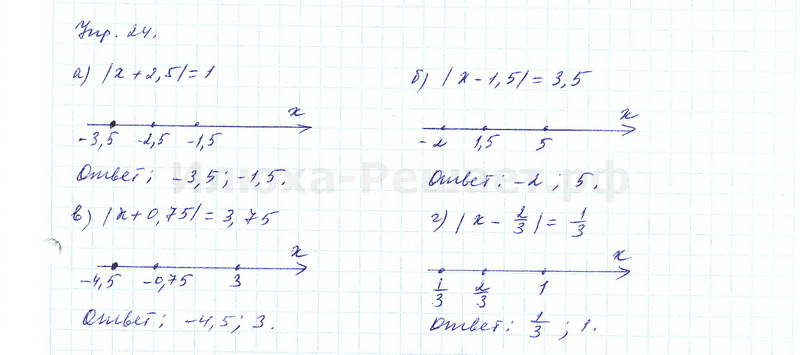 Упр. 24.
а) |x + 2,5| = 1
x
-3,5 -2,5 -1,5
Ответ: -3,5; -1,5.
б) |x - 1,5| = 3,5
x
-2 1,5 5
Ответ: -2; 5.
в) |x + 0,75| = 3,75
x
-4,5 -0,75 3
Ответ: -4,5; 3.
г) |x - 2/3| = 1/3
x
1/3 2/3 1
Ответ: 1/3; 1.
Илюха-Решает.рф